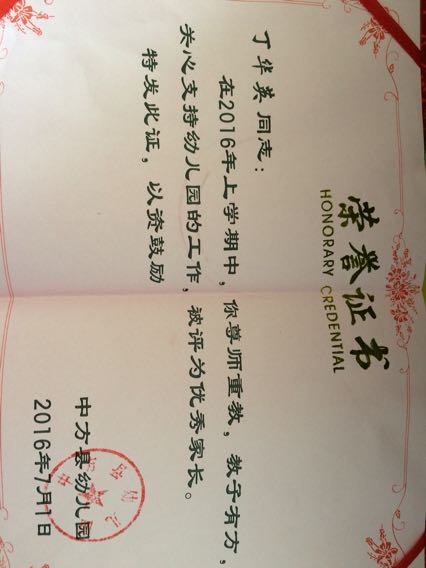 荣誉证书
HONORARY CREDENTIAL
丁华英同志：
在2016年上学期中，你尊师重教，教子有方，
关心支持幼儿园的工作，被评为优秀家长。
特发此证，以资鼓励
中方县幼儿园
2016年7月1日